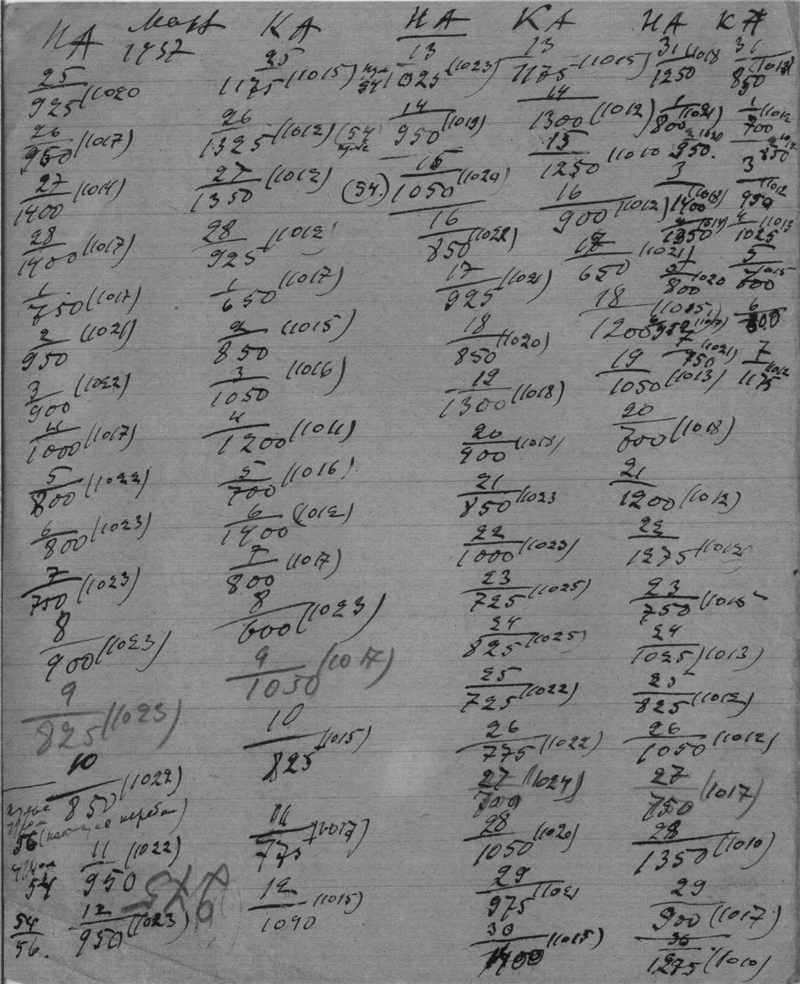 НА Март 1937 КА НА КА НА КА
25/925 (1020
26/950 (1017)
27/1400 (1014)
28/1400 (1017)
1/750 (1017)
2/950 (1021)
3/900 (1022)
4/1000 (1017)
5/800 (1022)
6/800 (1023)
7/750 (1023)
8/900 (1023)
9/825 (1023)
10/850 (1022)
56
11/950 (1022)
54
54/56. 12/950 (1023)
25/1175 (1015)
26/1325 (1012) (54
27/1350 (1012)
28/925 (1012)
1/650 (1017)
2/850 (1015)
3/1050 (1016)
4/1200 (1011)
5/700 (1016)
6/1400 (1012)
7/800 (1017)
8/600 (1023)
9/1050 (1017)
10/825 (1015)
11/775 (1017)
12/1090 (1015)
13/1025 (1023)
14/950 (1019)
(54) 15/1050 (1020)
16/850 (1022)
17/925 (1021)
18/850 (1020)
19/1300 (1018)
20/900 (1018)
21/850 (1023
22/1000 (1023)
23/725 (1025)
24/825 (1025)
25/725 (1022)
26/775 (1022)
27/700 (1024)
28/1050 (1020)
29/975 (1021
30/1400 (1015)
13/1175 (1015)
14/1300 (1012)
15/1250 (1010
16/900 (1012)
17/650 (1021)
18/1200 (1015)
19/1050 (1013)
20/600 (1018)
21/1200 (1012)
22/1275 (1012)
23/750 (1015
24/1025 (1013)
25/825 (1012)
26/1050 (1012)
27/750 (1017)
28/1350 (1010)
29/900 (1017)
30/1275 (1010)
31/1250 (1018
1/800 (1021)
2/950 (1020
3/1400 (1018)
4/1350 (1017)
5/800 (1020
7/750 (1021)
31/850 (1013)
1/700 (1012
2/850
3/950 (1012
4/1025 (1013
5/700 (1015
6/800
7/1175 (1012